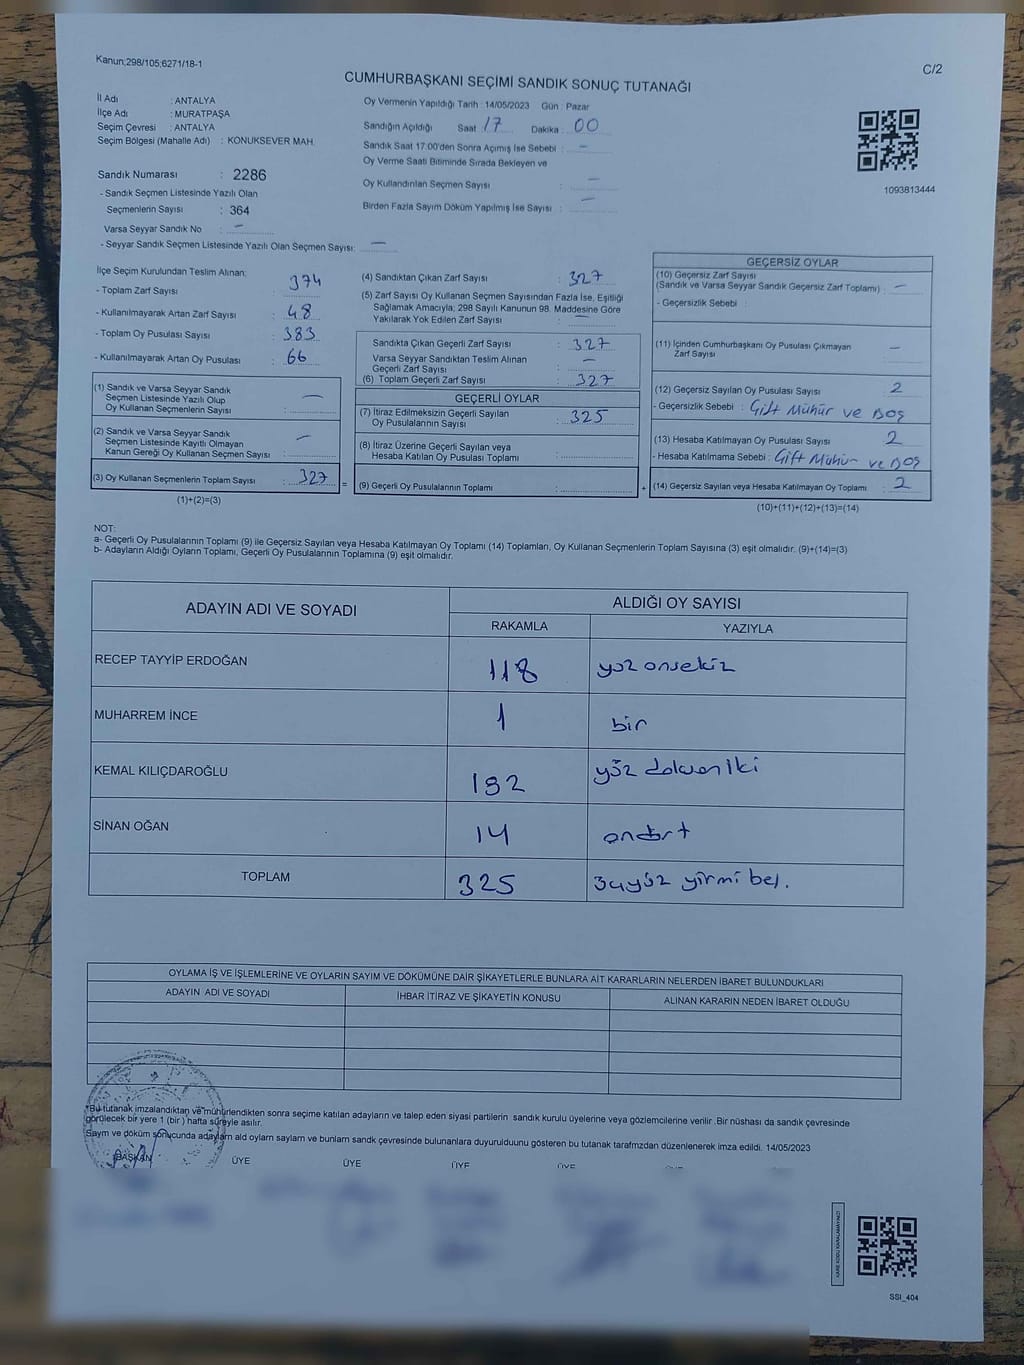 Kanun;298/105;6271/18-1
C/2
CUMHURBAŞKANI SEÇİMİ SANDIK SONUÇ TUTANAĞI
İl Adı : ANTALYA
İlçe Adı : MURATPAŞA
Seçim Çevresi : ANTALYA
Seçim Bölgesi (Mahalle Adı) : KONUKSEVER MAH.
Sandık Numarası : 2286
- Sandık Seçmen Listesinde Yazılı Olan
Seçmenlerin Sayısı : 364
Varsa Seyyar Sandık No : –
- Seyyar Sandık Seçmen Listesinde Yazılı Olan Seçmen Sayısı: –
Oy Vermenin Yapıldığı Tarih : 14/05/2023 Gün : Pazar
Sandığın Açıldığı Saat 17 Dakika : 00
Sandık Saat 17:00'den Sonra Açımış İse Sebebi : –
Oy Verme Saati Bitiminde Sırada Bekleyen ve
Oy Kullandırılan Seçmen Sayısı : –
Birden Fazla Sayım Döküm Yapılmış İse Sayısı : –
1093813444
İlçe Seçim Kurulundan Teslim Alınan;
- Toplam Zarf Sayısı : 374
- Kullanılmayarak Artan Zarf Sayısı : 48
- Toplam Oy Pusulası Sayısı : 383
- Kullanılmayarak Artan Oy Pusulası : 66
(1) Sandık ve Varsa Seyyar Sandık
Seçmen Listesinde Yazılı Olup
Oy Kullanan Seçmenlerin Sayısı : –
(2) Sandık ve Varsa Seyyar Sandık
Seçmen Listesinde Kayıtlı Olmayan
Kanun Gereği Oy Kullanan Seçmen Sayısı : –
(3) Oy Kullanan Seçmenlerin Toplam Sayısı : 327
(1)+(2)=(3)
(4) Sandıktan Çıkan Zarf Sayısı : 327
(5) Zarf Sayısı Oy Kullanan Seçmen Sayısından Fazla İse, Eşitliği
Sağlamak Amacıyla; 298 Sayılı Kanunun 98. Maddesine Göre
Yakılarak Yok Edilen Zarf Sayısı : –
Sandıkta Çıkan Geçerli Zarf Sayısı : 327
Varsa Seyyar Sandıktan Teslim Alınan
Geçerli Zarf Sayısı : –
(6) Toplam Geçerli Zarf Sayısı : 327
GEÇERLİ OYLAR
(7) İtiraz Edilmeksizin Geçerli Sayılan
Oy Pusulasının Sayısı : 325
(8) İtiraz Üzerine Geçerli Sayılan veya
Hesaba Katılan Oy Pusulası Toplamı :
= (9) Geçerli Oy Pusulalarının Toplamı :
GEÇERSİZ OYLAR
(10) Geçersiz Zarf Sayısı
(Sandık ve Varsa Seyyar Sandık Geçersiz Zarf Toplamı) : –
- Geçersizlik Sebebi :
(11) İçinden Cumhurbaşkanı Oy Pusulası Çıkmayan
Zarf Sayısı : –
(12) Geçersiz Sayılan Oy Pusulası Sayısı : 2
- Geçersizlik Sebebi : Çift Mühür ve Boş
(13) Hesaba Katılmayan Oy Pusulası Sayısı 2
- Hesaba Katılmama Sebebi : Çift Mühür ve Boş
+ (14) Geçersiz Sayılan veya Hesaba Katılmayan Oy Toplamı : 2
(10)+(11)+(12)+(13)=(14)
NOT:
a- Geçerli Oy Pusulalarının Toplamı (9) ile Geçersiz Sayılan veya Hesaba Katılmayan Oy Toplamı (14) Toplamları, Oy Kullanan Seçmenlerin Toplam Sayısına (3) eşit olmalıdır. (9)+(14)=(3)
b- Adayların Aldığı Oyların Toplamı, Geçerli Oy Pusulalarının Toplamına (9) eşit olmalıdır.
ADAYIN ADI VE SOYADI
ALDIĞI OY SAYISI
RAKAMLA YAZIYLA
RECEP TAYYİP ERDOĞAN 118 yüz onsekiz
MUHARREM İNCE 1 bir
KEMAL KILIÇDAROĞLU 192 yüz doksan iki
SİNAN OĞAN 14 ondört
TOPLAM 325 üçyüz yirmi beş.
OYLAMA İŞ VE İŞLEMLERİNE VE OYLARIN SAYIM VE DÖKÜMÜNE DAİR ŞİKAYETLERLE BUNLARA AİT KARARLARIN NELERDEN İBARET BULUNDUKLARI
ADAYIN ADI VE SOYADI İHBAR İTİRAZ VE ŞİKAYETİN KONUSU ALINAN KARARIN NEDEN İBARET OLDUĞU
*Bu tutanak imzalandıktan ve mühürlendikten sonra seçime katılan adayların ve talep eden siyasi partilerin sandık kurulu üyelerine veya gözlemcilerine verilir. Bir nüshası da sandık çevresinde
görülecek bir yere 1 (bir ) hafta süreyle asılır.
Sayım ve döküm sonucunda adayların ald oyların sayların ve bunların sandk çevresinde bulunanlara duyurulduunu gösteren bu tutanak tarafmzdan düzenlenerek imza edildi. 14/05/2023
BAŞKAN ÜYE ÜYE ÜYE ÜYE
KARE KODU KARALAMAYINIZ!
SSI_404